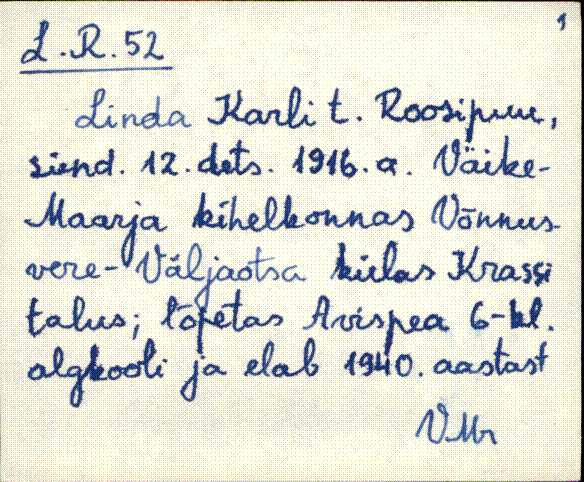 1
L.R. 52
Linda Karli t. Roosipuu,
sünd. 12. dets. 1916. a. Väike-
Maarja kihelkonnas Võnnus-
vere-Väljaotsa külas Krassi
talus; lõpetas Avispea 6-kl.
algkooli ja elab 1940. aastast
VMr